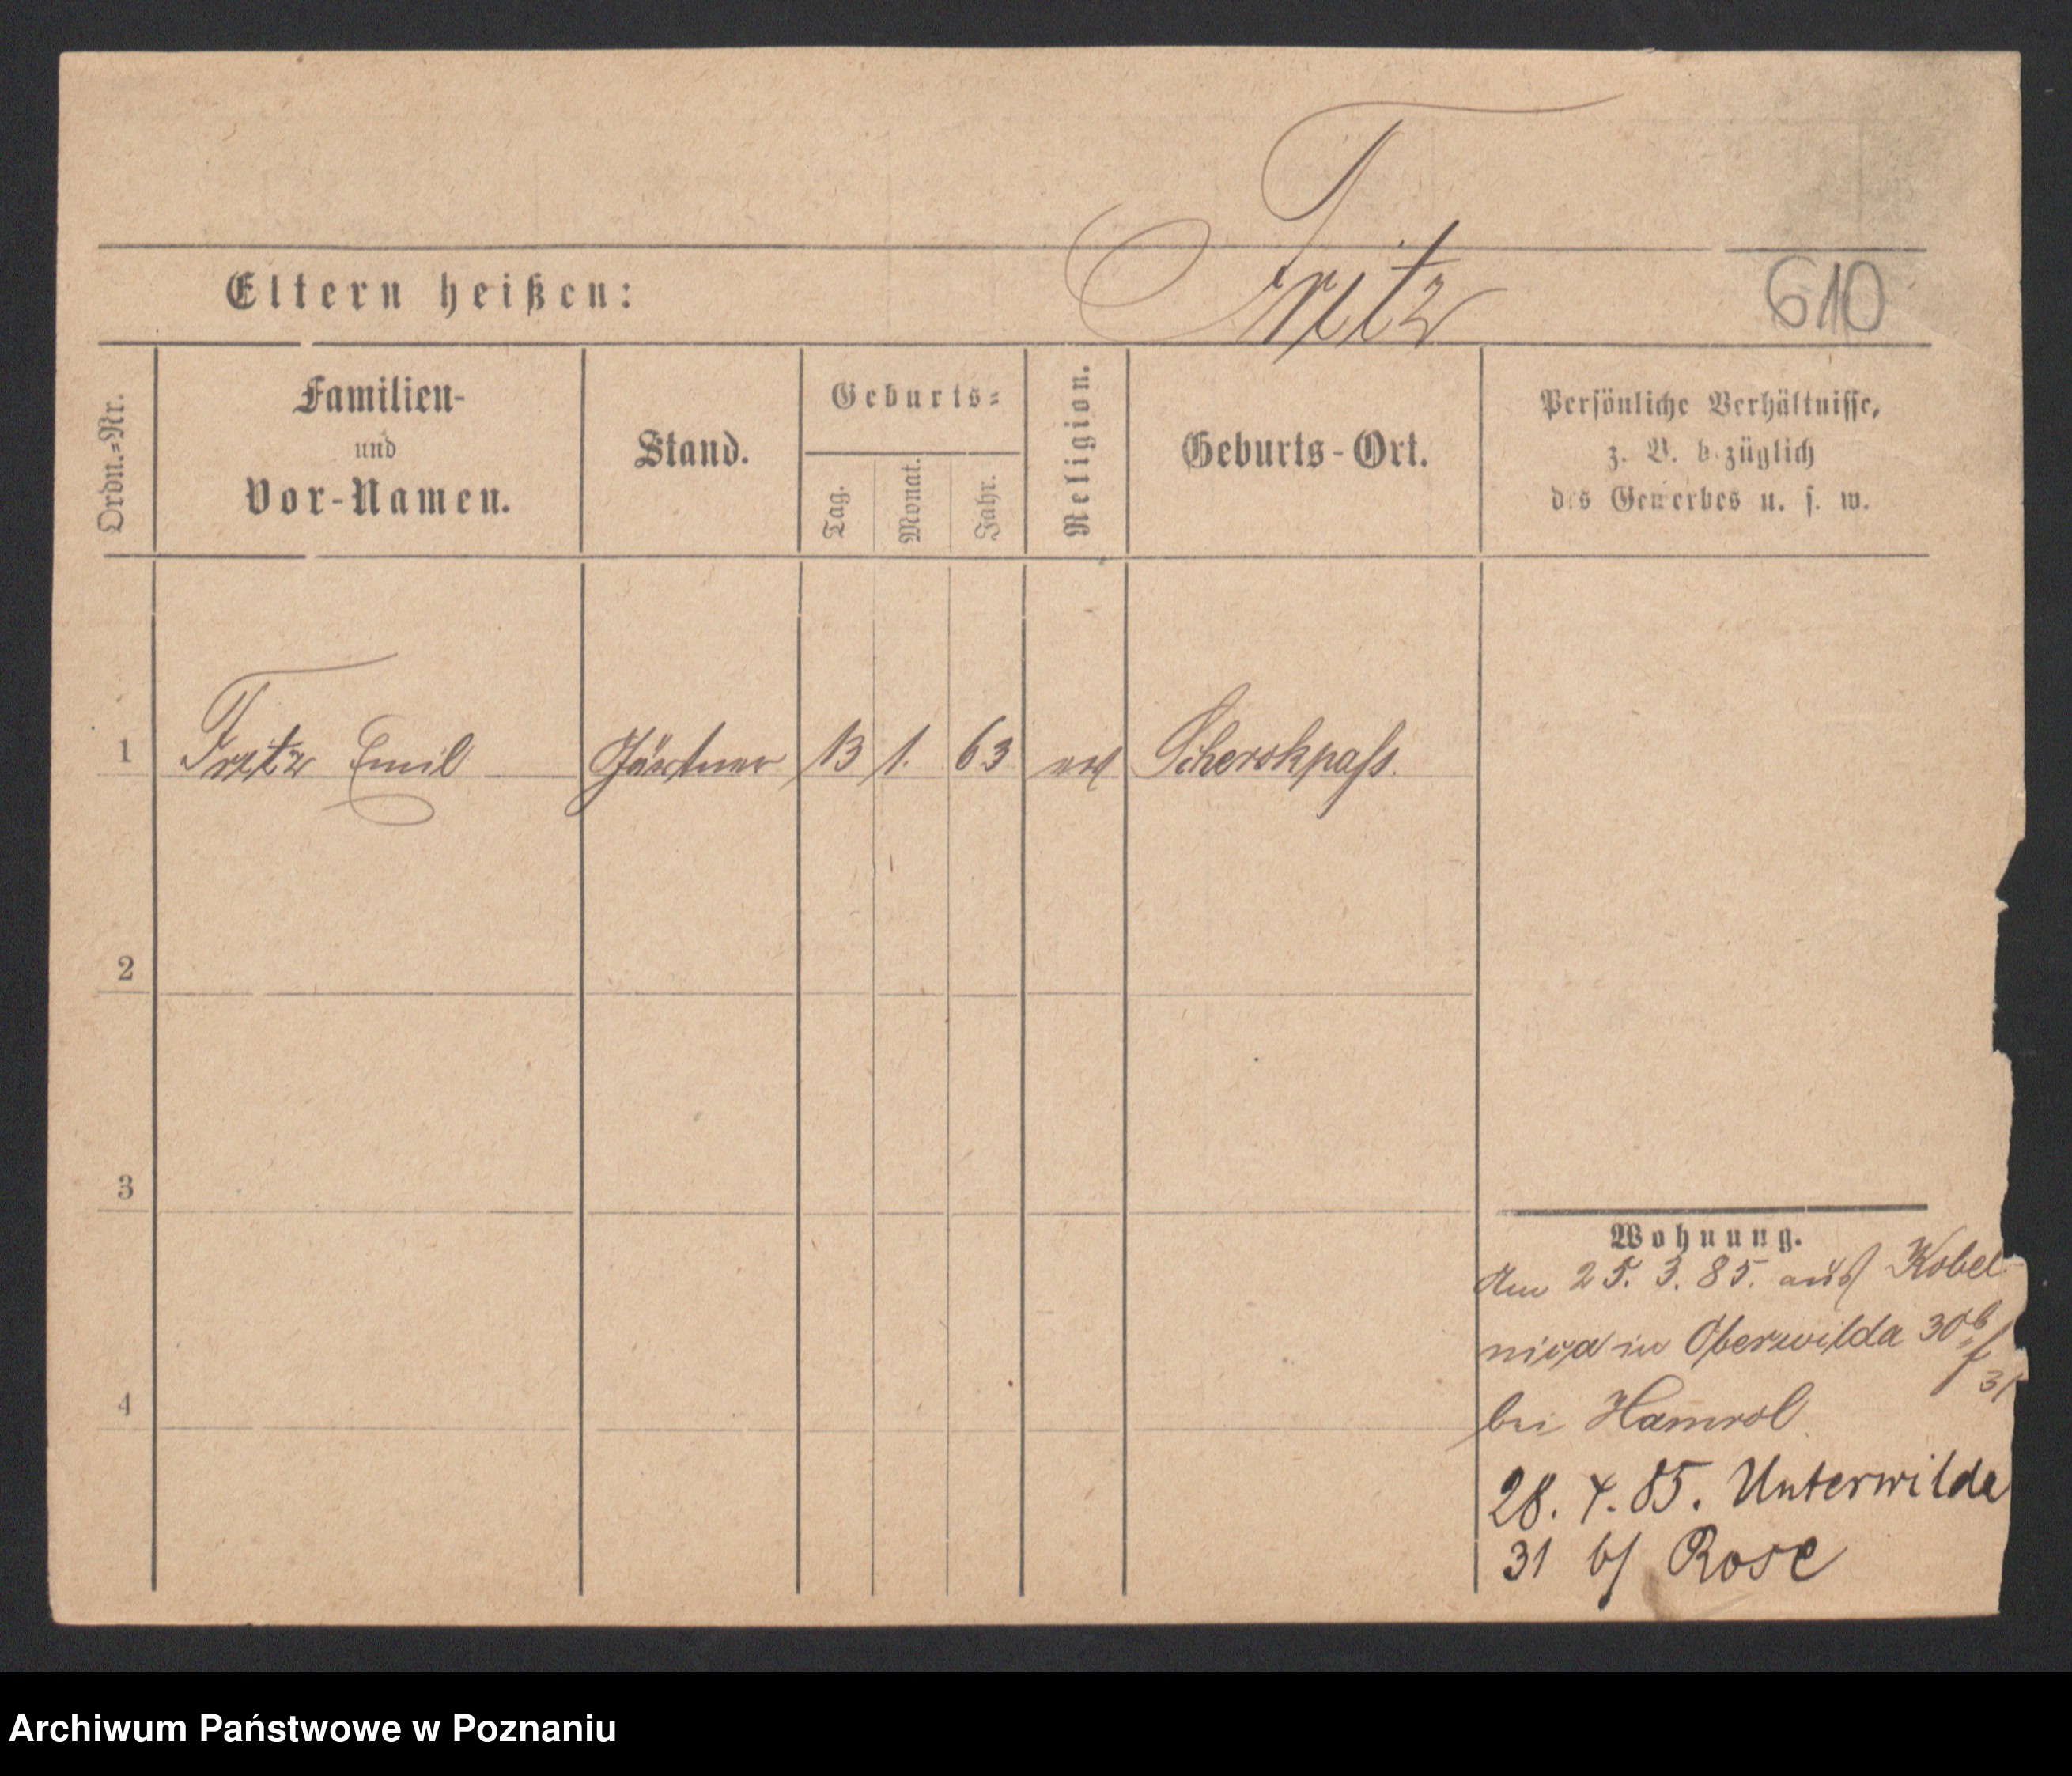 Fritz
610
Eltern heißen:
Ordn.=Nr.
Familien-
und
Vor-Namen.
Stand.
Geburts=
Tag.
Monat.
Jahr.
Religion.
Geburts-Ort.
Persönliche Verhältnisse,
z. B. bezüglich
des Gewerbes u. s. w.
1 Fritz Emil Gärtner 13 1. 63 ev Scherokpass.
2
3
4
Wohnung.
Am 25. 3. 85. aus Kobel
nica in Oberwilda 30b
31
bei Hamrol
28. 4. 85. Unterwilda
31 b/ Rose
Archiwum Państwowe w Poznaniu